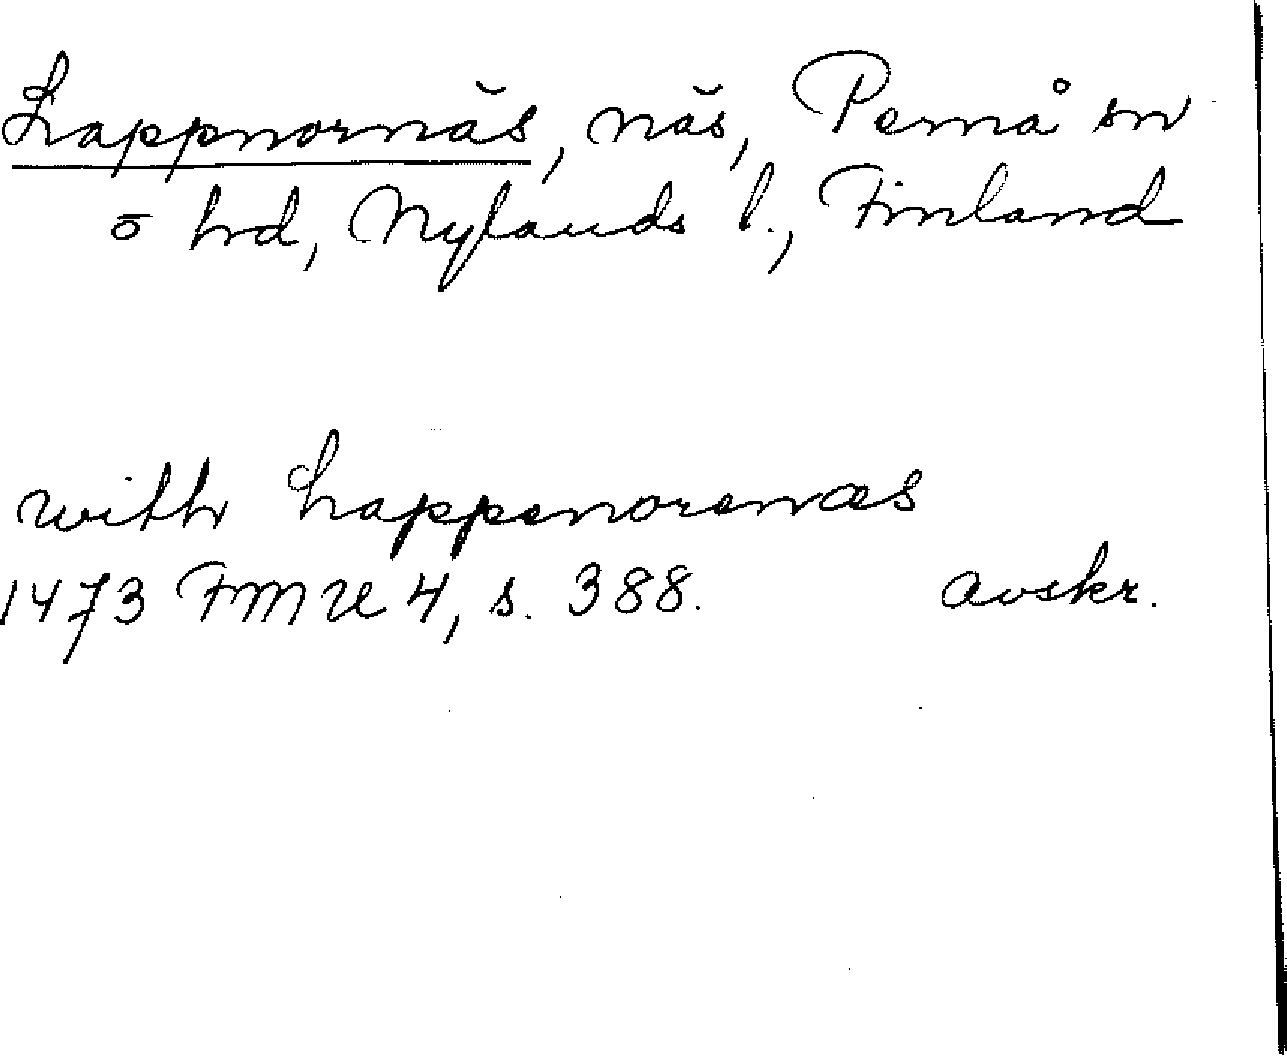 Lappnornäs, näs, Pernå sn
o hd, Nylands l., Finland
with Lappenorenæs
1473 FMU 4, s. 388. avskr.